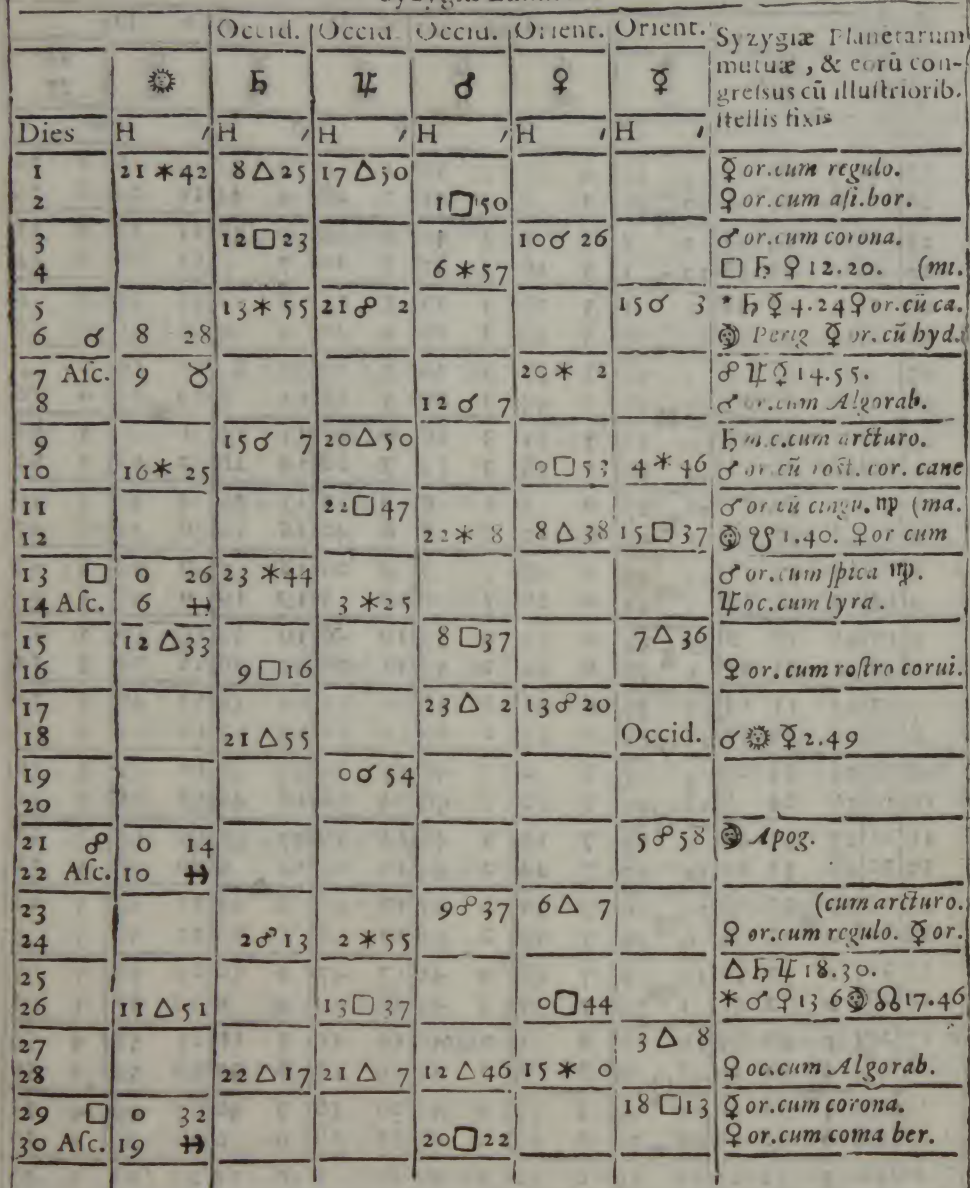 Occid. Occid. Occid. Orient. Orient. Syzygiæ Planetarum
mutuæ, & eorū con-
☼ ♄ ♃ ♂ ♀ ☿ gressus cū illustriorib.
stellis fixis
Dies H ′ H ′ H ′ H ′ H ′ H ′
1 21 ⚹ 42 8 △ 25 17 △ 50 ☿ or.cum regulo.
2 1 □ 50 ♀ or.cum asi.bor.
3 12 □ 23 10 ☌ 26 ♂ or.cum corona.
4 6 ⚹ 57 □ ♄ ♀ 12.20. (mi.
5 13 ⚹ 55 21 ☍ 2 15 ☌ 3 * ♄ ☿ 4.24 ♀ or.cū ca.
6 ☌ 8 28 ☽ Perig ☿ or. cū hyd.
7 Asc. 9 ♉ 20 ⚹ 2 ☍ ♃ ☿ 14.55.
8 12 ☌ 7 ♂ or.cum Algorab.
9 15 ☌ 7 20 △ 50 ♄ m.c.cum arcturo.
10 16 ⚹ 25 0 □ 53 4 ⚹ 46 ♂ or.cū rost. cor. cane
11 22 □ 47 ♂ or cū cingu. ♍ (ma.
12 22 ⚹ 8 8 △ 38 15 □ 37 ☽ ☋ 1.40. ♀ or cum
13 □ 0 26 23 ⚹ 44 ♂ or.cum spica ♍.
14 Asc. 6 ♓ 3 ⚹ 25 ♃ oc.cum lyra.
15 12 △ 33 8 □ 37 7 △ 36
16 9 □ 16 ♀ or. cum rostro corui.
17 23 △ 2 13 ☍ 20
18 21 △ 55 Occid. ☌ ☼ ☿ 2.49
19 0 ☌ 54
20
21 ☍ 0 14 5 ☍ 58 ☽ Apog.
22 Asc. 10 ♓
23 9 ☍ 37 6 △ 7 (cum arcturo.
24 2 ☍ 13 2 ⚹ 55 ♀ or.cum regulo. ☿ or.
25 △ ♄ ♃ 18.30.
26 11 △ 51 13 □ 37 0 □ 44 ⚹ ♂ ♀ 13 6 ☽ ☊ 17.46
27 3 △ 8
28 22 △ 17 21 △ 7 12 △ 46 15 ⚹ 0 ♀ oc.cum Algorab.
29 □ 0 32 18 □ 13 ☿ or.cum corona.
30 Asc. 19 ♓ 20 □ 22 ♀ or.cum coma ber.